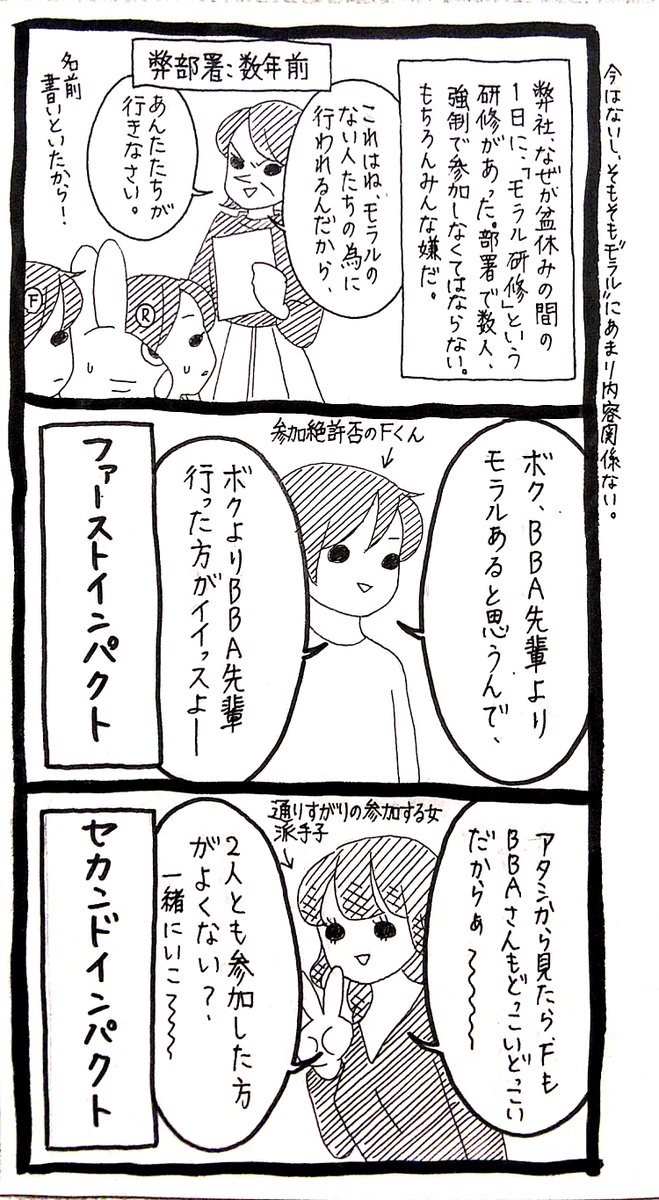 今はないし、そもそも"モラル"にあまり内容関係ない。
弊部署:数年前
弊社、なぜか盆休みの間の
1日に、「モラル研修」という
研修があった。部署で数人、
強制で参加しなくてはならない。
もちろんみんな嫌だ。
これはね、モラルの
ない人たちの為に
行われるんだから、
あんたたちが
行きなさい。
名前
書いといたから!
F
R
参加絶許否のFくん
ボク、BBA先輩より
モラルあると思うんで、
ボクよりBBA先輩
行った方がイイっスよー
ファーストインパクト
通りすがりの参加する女
派手子
アタシから見たら、Fも
BBAさんもどっこいどっこい
だからぁ~~~
2人とも参加した方
がよくない?
一緒にいこ~~~
セカンドインパクト